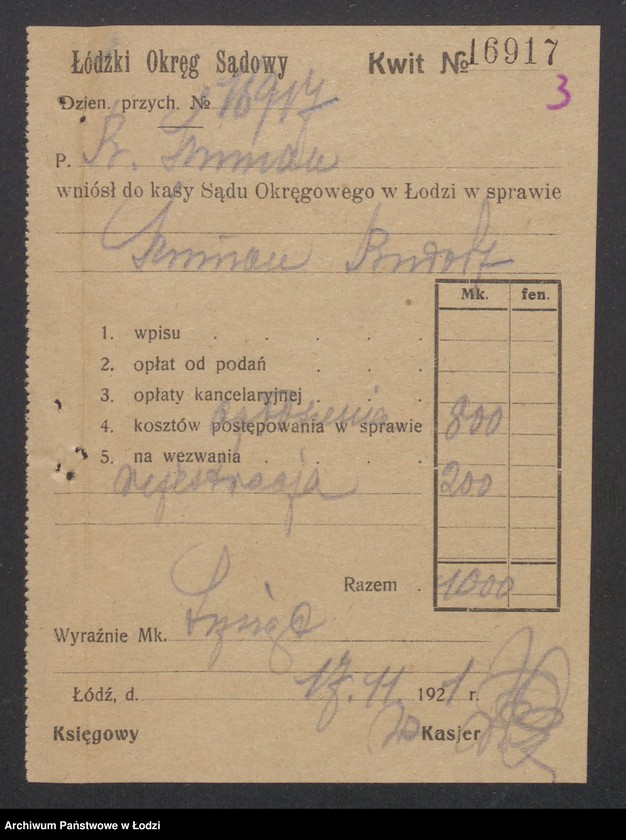 Łódźki Okręg Sądowy
Kwit № 16917
3
Dzien. przych. № 16917
P.
wniósł do kasy Sądu Okręgowego w Łodzi w sprawie
Mk. fen.
1. wpisu
2. opłat od podań
3. opłaty kancelaryjnej
ogłoszenia
4. kosztów postępowania w sprawie 800
5. na wezwania
rejestracja 200
Razem 1000
Wyraźnie Mk. Tysiąc
Łódź, d. 17.11. 1921 r.
Księgowy Kasjer
Archiwum Państwowe w Łodzi